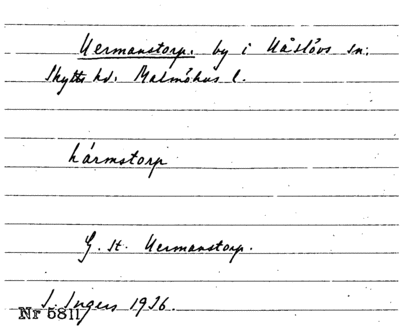 Hermanstorp. by i Håslövs sn.
Skytts hd. Malmöhus l.
hármstorp
G. st. Hermanstorp.
I. Ingers 1936.
Nr 5811